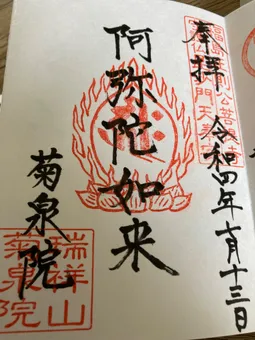 奉拝
令和四年七月十三日
阿弥陀如来
菊泉院
瑞祥山
菊泉院